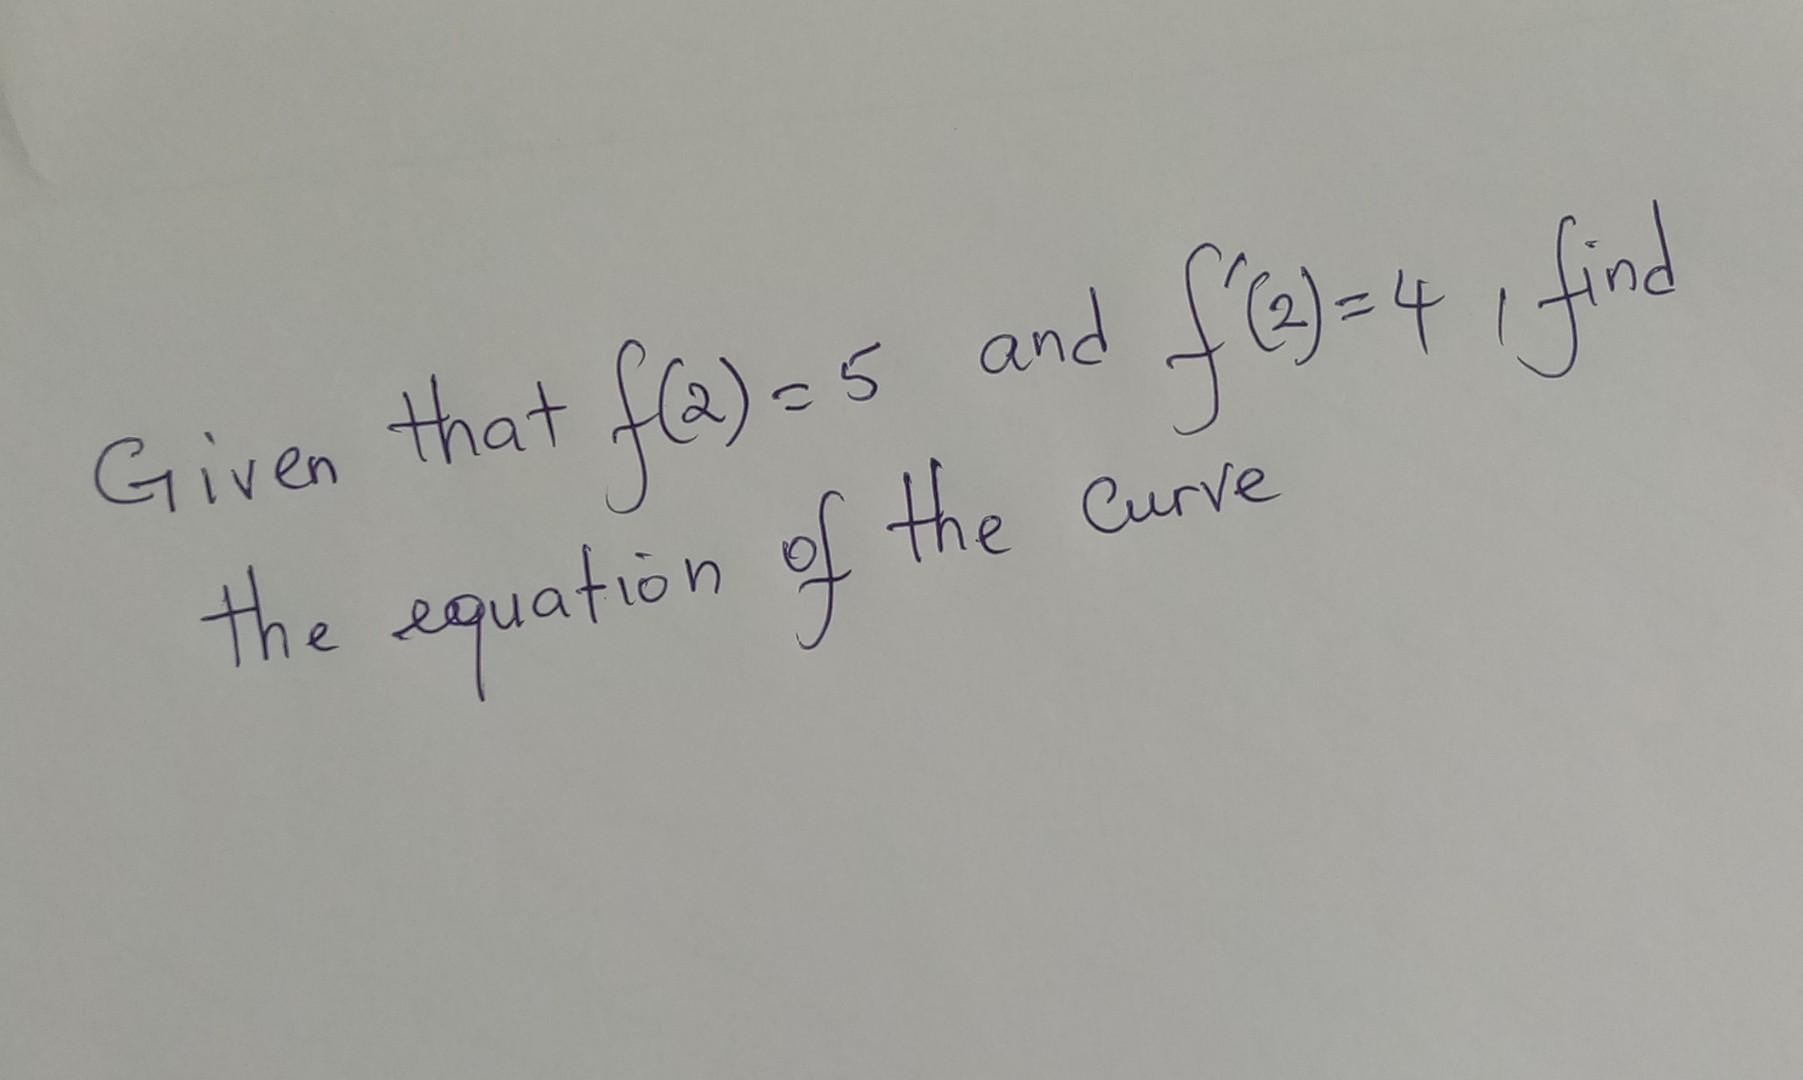 Given that f(2) = 5 and f'(2) = 4 , find
the equation of the curve